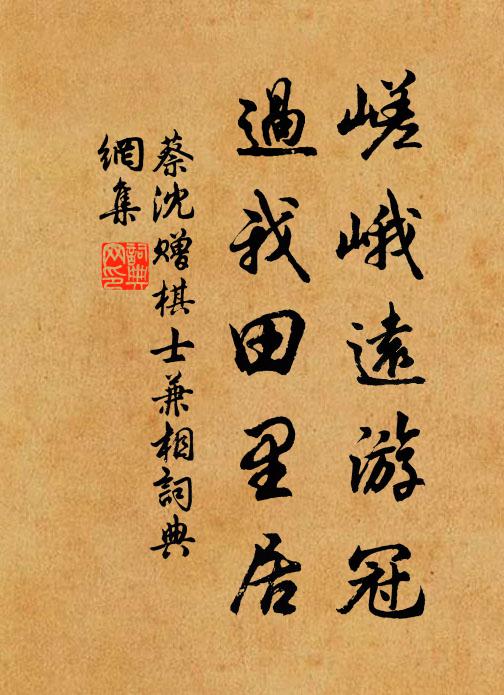 嵯峨遠游冠
過我田里居
蔡沈贈棋士兼相詞典
網集
詞典网印